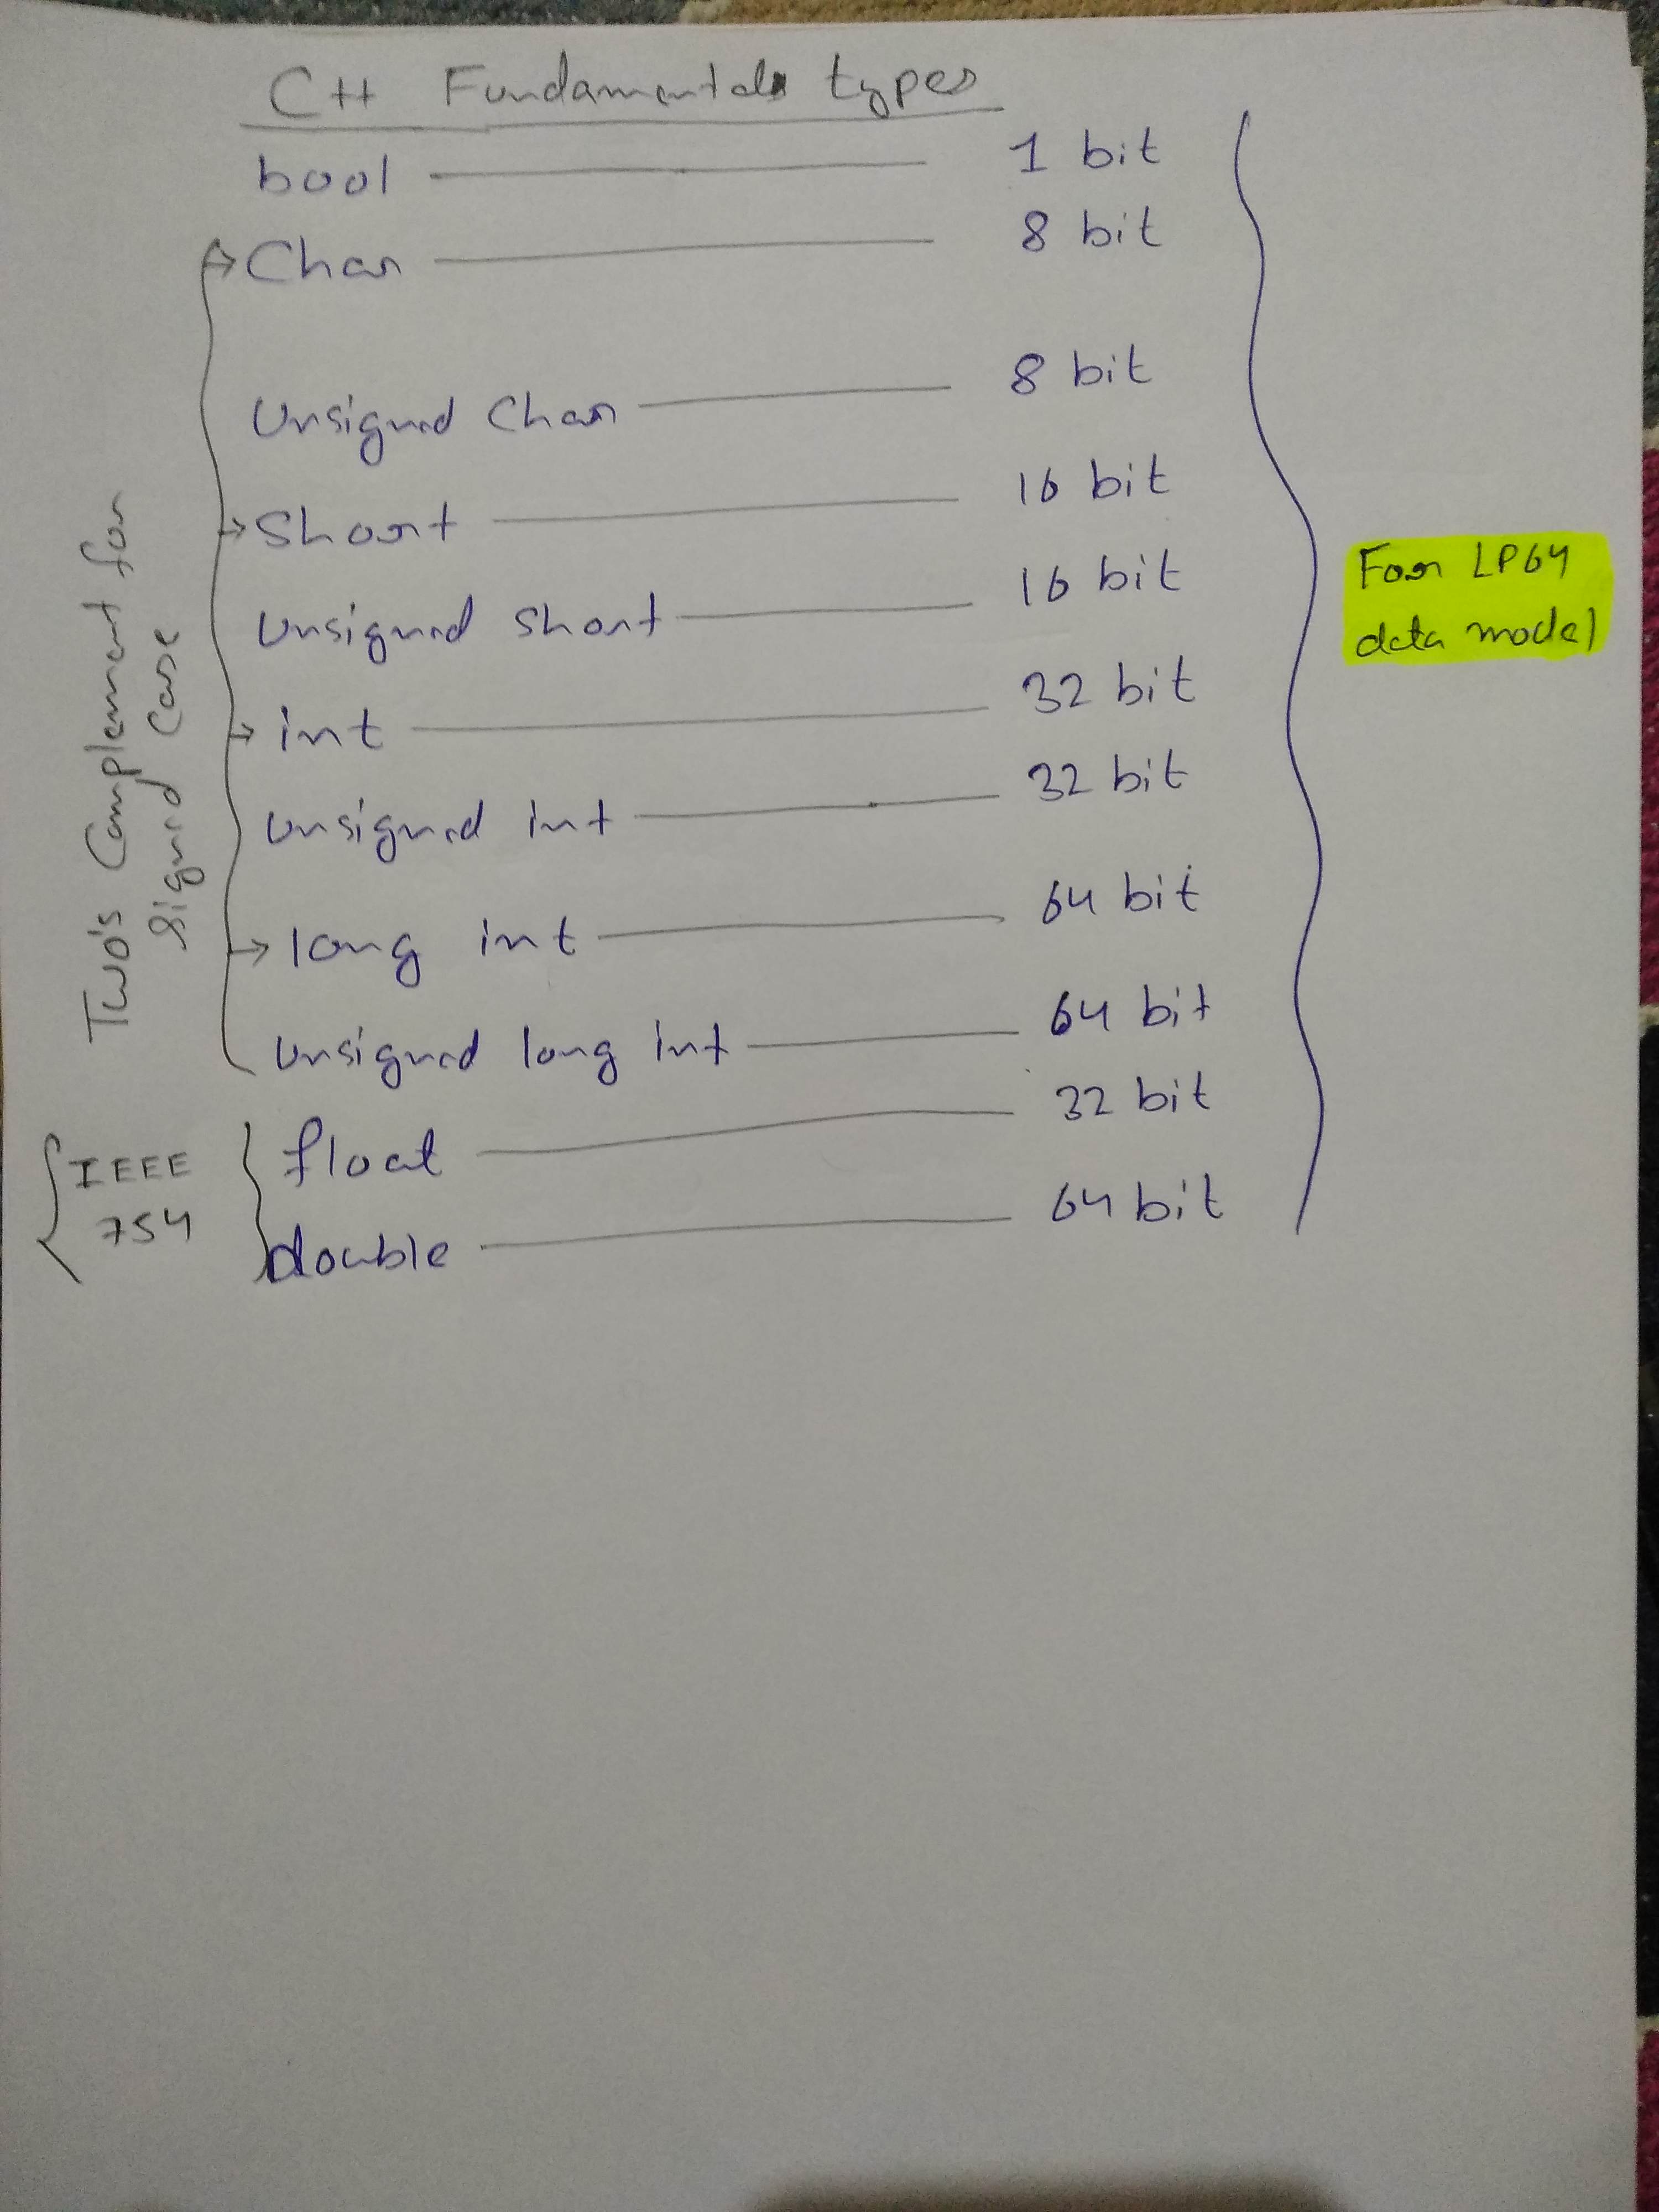 C++ Fundamentals types
bool 1 bit
Char 8 bit
Unsigned Char 8 bit
Short 16 bit
Unsigned short 16 bit
int 32 bit
unsigned int 32 bit
long int 64 bit
unsigned long int 64 bit
float 32 bit
double 64 bit
Two's Complement for
Signed Case
IEEE
754
For LP64
data model